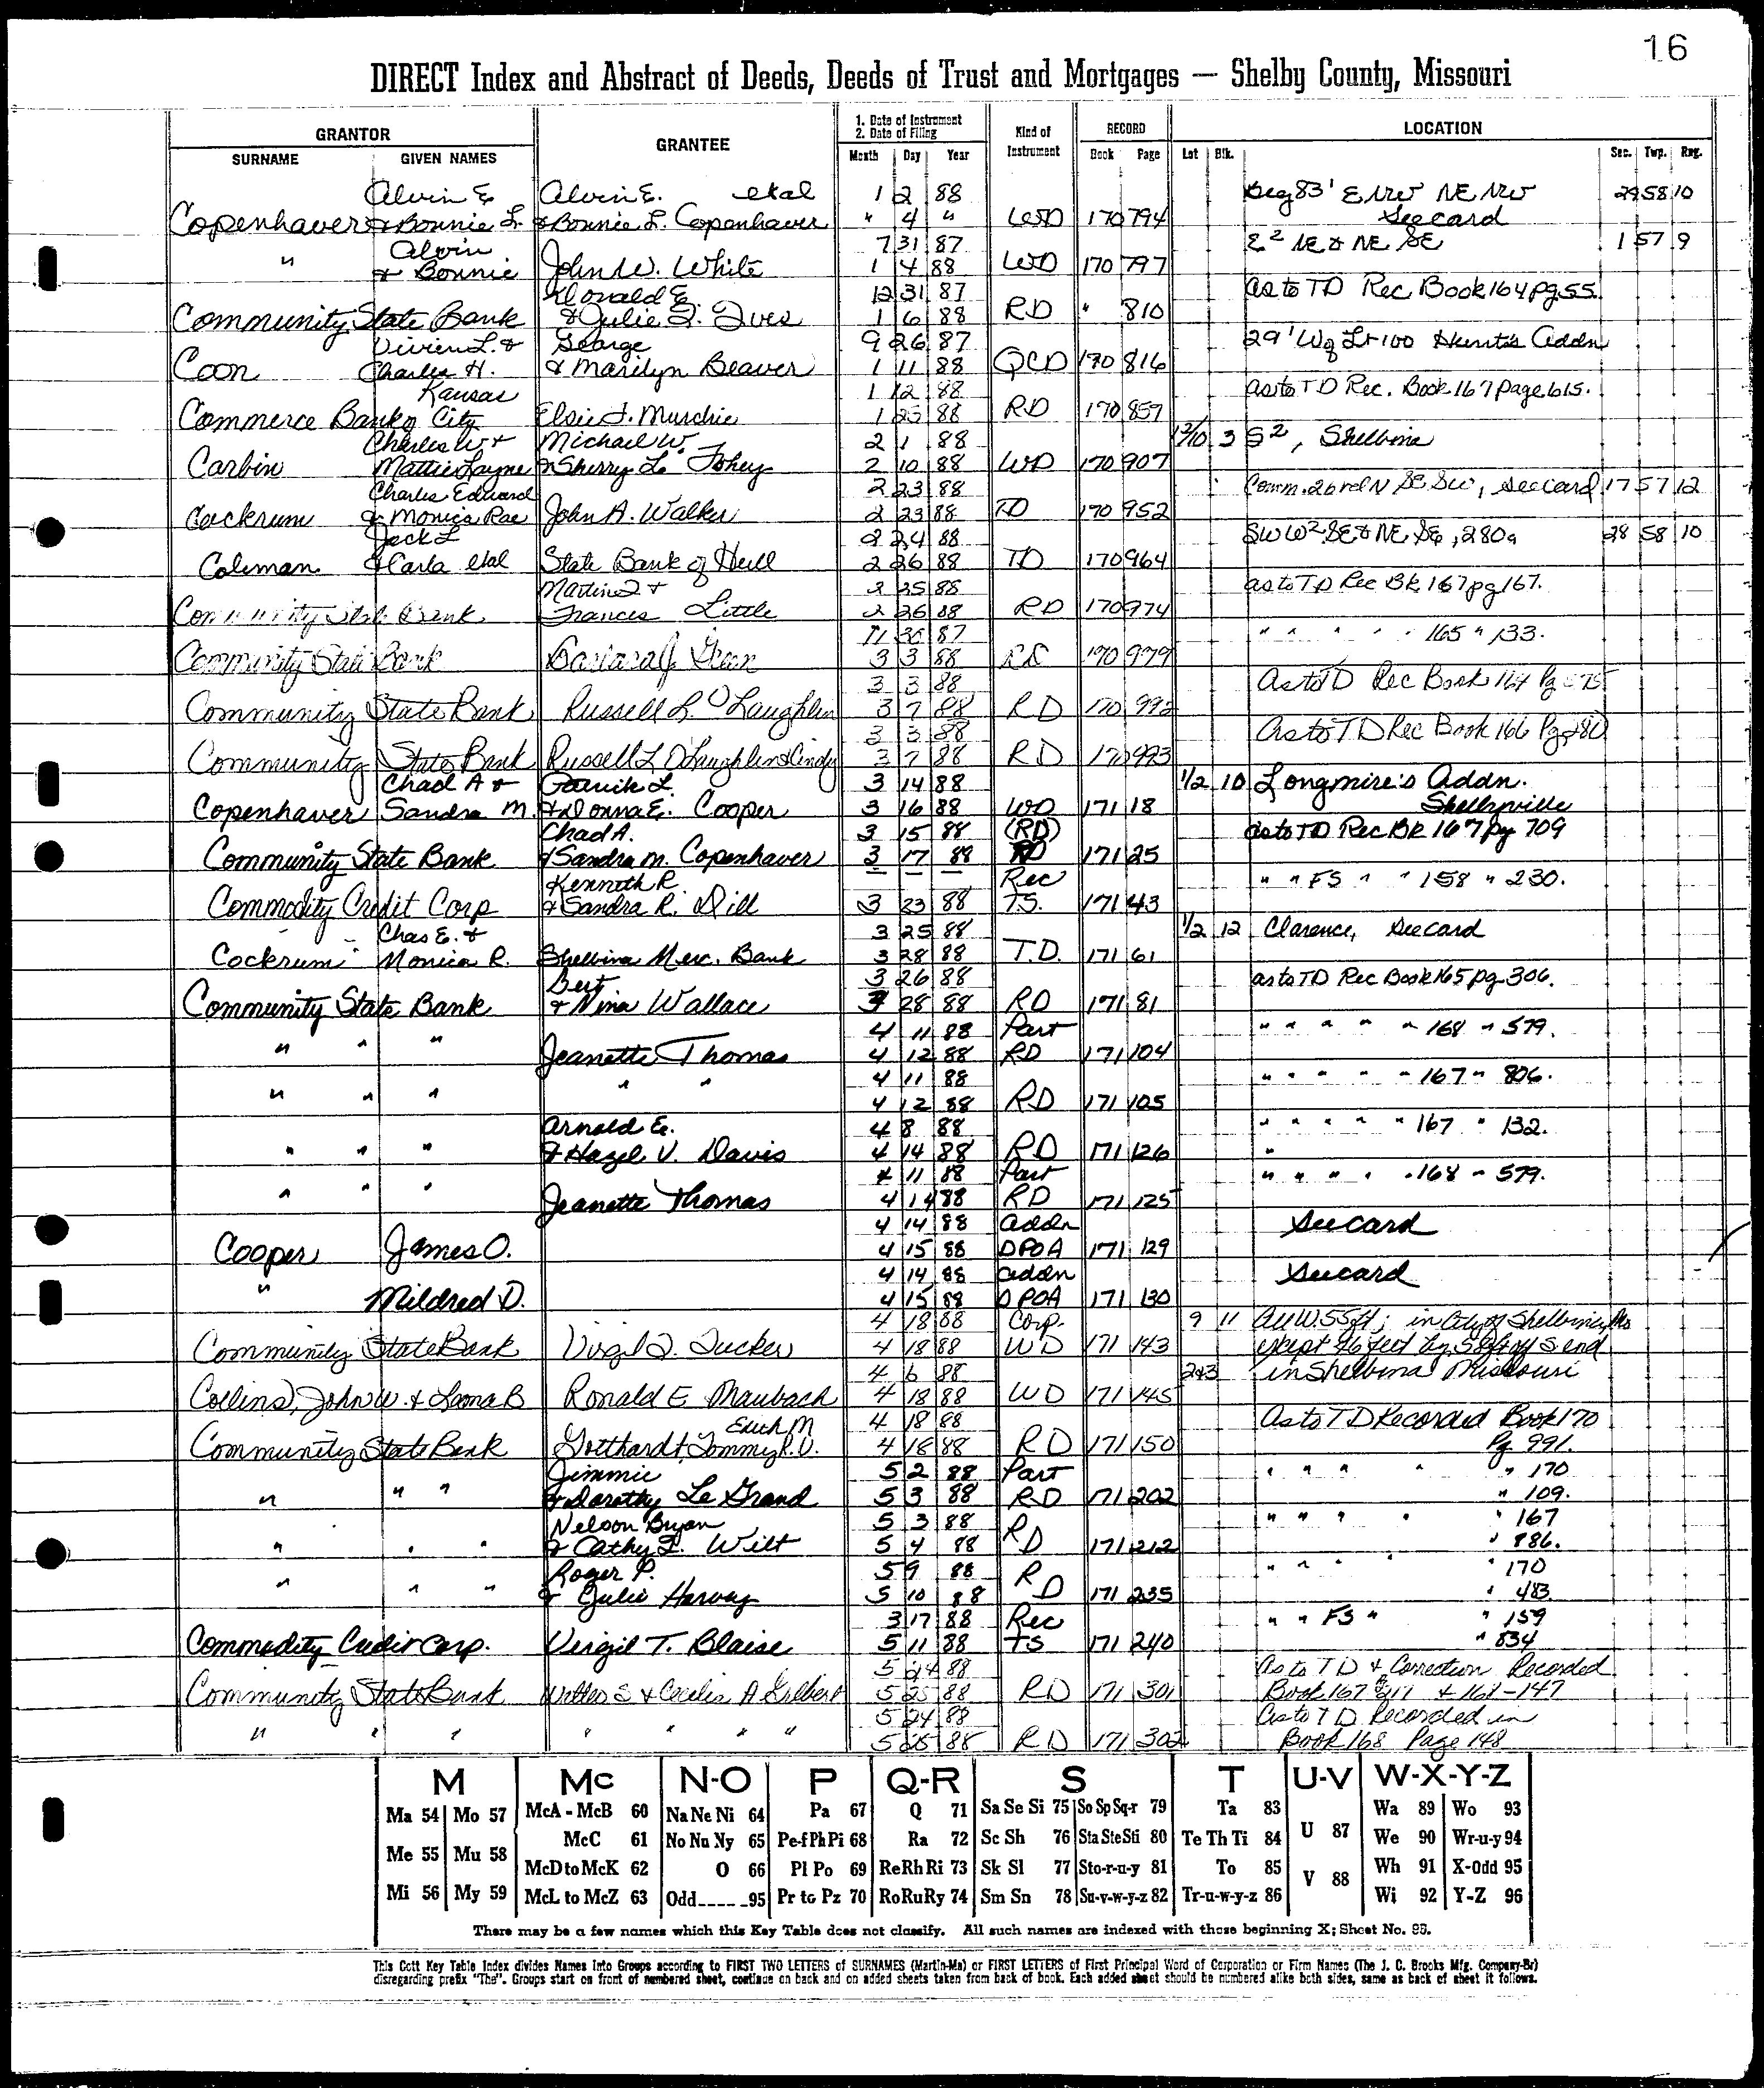 16
DIRECT Index and Abstract of Deeds, Deeds of Trust and Mortgages — Shelby County, Missouri
GRANTOR GRANTEE 1. Date of Instrument 2. Date of Filing Kind of Instrument RECORD LOCATION
SURNAME GIVEN NAMES Month Day Year Book Page Lot Blk. Sec. Twp. Rng.
Alvin E Alvin E. etal 1 2 88 Beg 83' E NW NE NW 29 58 10
Copenhaver & Bonnie L. & Bonnie L. Copenhaver " 4 " WD 170 794 See card
Alvin 7 31 87 E² NE & NE SE 1 57 9
" & Bonnie John W. White 1 4 88 WD 170 797
Donald E. 12 31 87 as to TD Rec Book 164 pg 55
Community State Bank & Julie 1 6 88 RD " 810
Vivien L. & George 9 26 87 29' W of Lt 100 Addn
Coon Charles H. & Marilyn Beaver 1 11 88 QCD 170 816
Kansas 1 12 88 as to TD Rec. Book 167 page 615.
Commerce Bank of City Elsie J. Murchie 1 25 88 RD 170 857
Charles W & Michael W. 2 1 88 3 S², Shelbina
Carbin Mattie Layne & Sherry L. Fohey 2 10 88 WD 170 907
Charles Edward 2 23 88 Comm. 26 rd N SE SW, see card 17 57 12
Cockrum & Monica Rae John A. Walker 2 23 88 TD 170 952
Jack L 2 24 88 SW W² SE & NE SE, 280a 28 58 10
Coleman & Carla etal State Bank of 2 26 88 TD 170 964
Martin & 2 25 88 as to TD Rec Bk 167 pg 167.
Community State Bank Frances Little 2 26 88 RD 170 974
11 30 87 " " " " " 165 " 133.
Community State Bank Barbara J. 3 3 88 RD 170 979
3 3 88 As to TD Rec Book 164 Pg
Community State Bank Russell L. O'Laughlin 3 7 88 RD 170 992
3 3 88 As to TD Rec Book 166 Pg 280
Community State Bank Russell L O'Laughlin & Cindy 3 7 88 RD 170 993
Chad A & Patrick L. 3 14 88 1/2 10 Longmire's Addn.
Copenhaver Sandra M. & Donna E. Cooper 3 16 88 WD 171 18 Shelbyville
Chad A. 3 15 88 (RD) as to TD Rec Bk 167 pg 709
Community State Bank & Sandra M. Copenhaver 3 17 88 171 25
Kenneth R — — — Rec " " FS " " 158 " 230.
Commodity Credit Corp & Sandra R. Dill 3 23 88 T.S. 171 43
Chas E. & 3 25 88 1/2 12 Clarence, See card
Cockrum Monica R. Shelbina Merc. Bank 3 28 88 T.D. 171 61
Bert 3 26 88 as to TD Rec Book 165 pg 306.
Community State Bank & Nina Wallace 3 28 88 RD 171 81
4 11 88 Part " " " " " 168 " 579.
" " " Jeanette Thomas 4 12 88 RD 171 104
4 11 88 " " " " " 167 " 806.
" " " " " 4 12 88 RD 171 105
Arnold E. 4 8 88 " " " " " 167 " 132.
" " " & Hazel V. Davis 4 14 88 RD 171 126 "
4 11 88 Part " " " " " 168 " 579.
" " " Jeanette Thomas 4 14 88 RD 171 125
4 14 88 addn See card
Cooper James O. 4 15 88 DPOA 171 129
4 14 88 addn See card
" Mildred D. 4 15 88 DPOA 171 130
4 18 88 Corp. 9 11 All W. 55 ft; in City of Shelbina, Mo
Community State Bank Virgil Tucker 4 18 88 WD 171 143 except 46 feet S end
4 6 88 2&3 in Shelbina Missouri
Collins, John W. & Leona B Ronald E Maubach 4 18 88 WD 171 145
Edith M 4 18 88 As to TD Recorded Book 170
Community State Bank Gotthardt, Tommy R. 4 18 88 RD 171 150 Pg 991.
Jimmie 5 2 88 Part " " " " " 170
" " " & Dorothy Le Grand 5 3 88 RD 171 202 " 109.
Nelson Bryan 5 3 88 RD " " " " " 167
" " " & Cathy Wilt 5 4 88 171 212 " 886.
Roger P. 5 9 88 RD " " " " 170
" " " & Julie Harvey 5 10 88 171 235 " 483
3 17 88 Rec " " FS " " 159
Commodity Credit Corp. Virgil T. Blaise 5 11 88 TS 171 240 " 834
5 24 88 As to TD & Correction Recorded
Community State Bank Walter S & Cecilia A Gilbert 5 25 88 RD 171 301 Book 167 & 168-147
5 24 88 As to TD Recorded in
" " " " " " " 5 25 88 RD 171 302 Book 168 Page 148
M Mc N-O P Q-R S T U-V W-X-Y-Z
Ma 54 Mo 57 McA - McB 60 Na Ne Ni 64 Pa 67 Q 71 Sa Se Si 75 So Sp Sq-r 79 Ta 83 U 87 Wa 89 Wo 93
Me 55 Mu 58 McC 61 No Nu Ny 65 Pe-f Ph Pi 68 Ra 72 Sc Sh 76 Sta Ste Sti 80 Te Th Ti 84 We 90 Wr-u-y 94
McD to McK 62 O 66 Pl Po 69 Re Rh Ri 73 Sk Sl 77 Sto-r-u-y 81 To 85 V 88 Wh 91 X-Odd 95
Mi 56 My 59 McL to McZ 63 Odd_____95 Pr to Pz 70 Ro Ru Ry 74 Sm Sn 78 Su-v-w-y-z 82 Tr-u-w-y-z 86 Wi 92 Y-Z 96
There may be a few names which this Key Table does not classify. All such names are indexed with those beginning X; Sheet No. 95.
This Cott Key Table Index divides Names Into Groups according to FIRST TWO LETTERS of SURNAMES (Martin-Ma) or FIRST LETTERS of First Principal Word of Corporation or Firm Names (The J. C. Brooks Mfg. Company-Br)
disregarding prefix "The". Groups start on front of numbered sheet, continue on back and on added sheets taken from back of book. Each added sheet should be numbered alike both sides, same as back of sheet it follows.